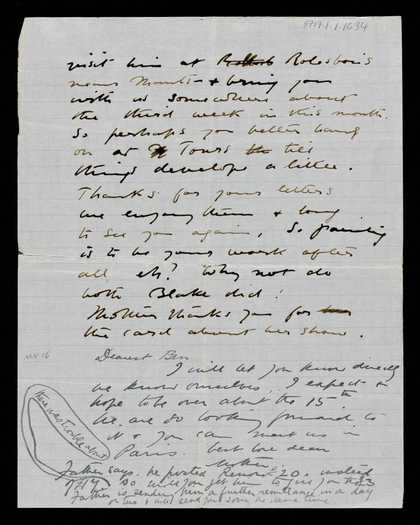 visit him at Rolesboris
near Mantes + bring you
with us somewhere about
the third week in this month.
So perhaps you better hang
on at Tours till
things develope a little.
Thanks for your letters
we enjoy them + long
to see you again, So painting
is to be your work after
all eh? Why not do
both Blake did!
Mother thanks you for
the card about her show.
Dearest Ben
I will let you know directly
we know ourselves. I expect or
hope to be over about the 15th
We are so looking forward to
it + you can meet us in
Paris. best love dear
Mother.
Father says he posted £20. instead
of 17 so will you get him to give you the £3
Father is sending him a further remittance in a day
or two + will send you some the same time